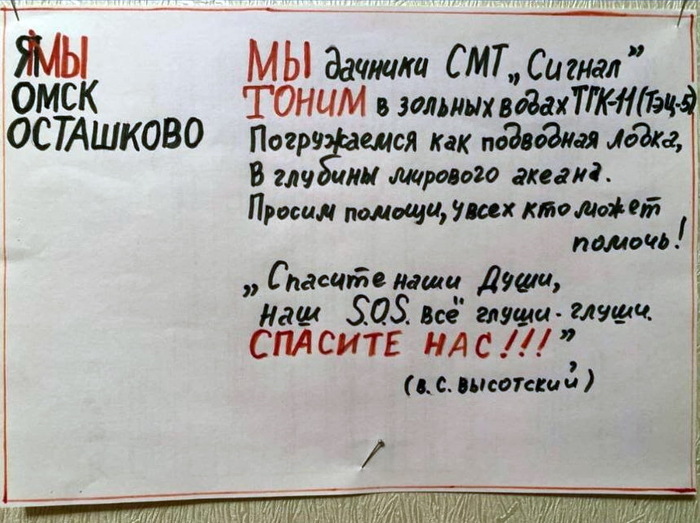 Я/МЫ
ОМСК
ОСТАШКОВО
МЫ дачники СМТ „Сигнал”
ТОНИМ в зольных водах ТГК-11 (ТЭЦ-5)
Погружаемся как подводная лодка,
в глубины мирового акеана.
Просим помощи, у всех кто может
помочь!
„Спасите наши Души,
наш S.O.S. всё глуши - глуши.
СПАСИТЕ НАС!!!”
(В. С. ВЫСОТСКИЙ)